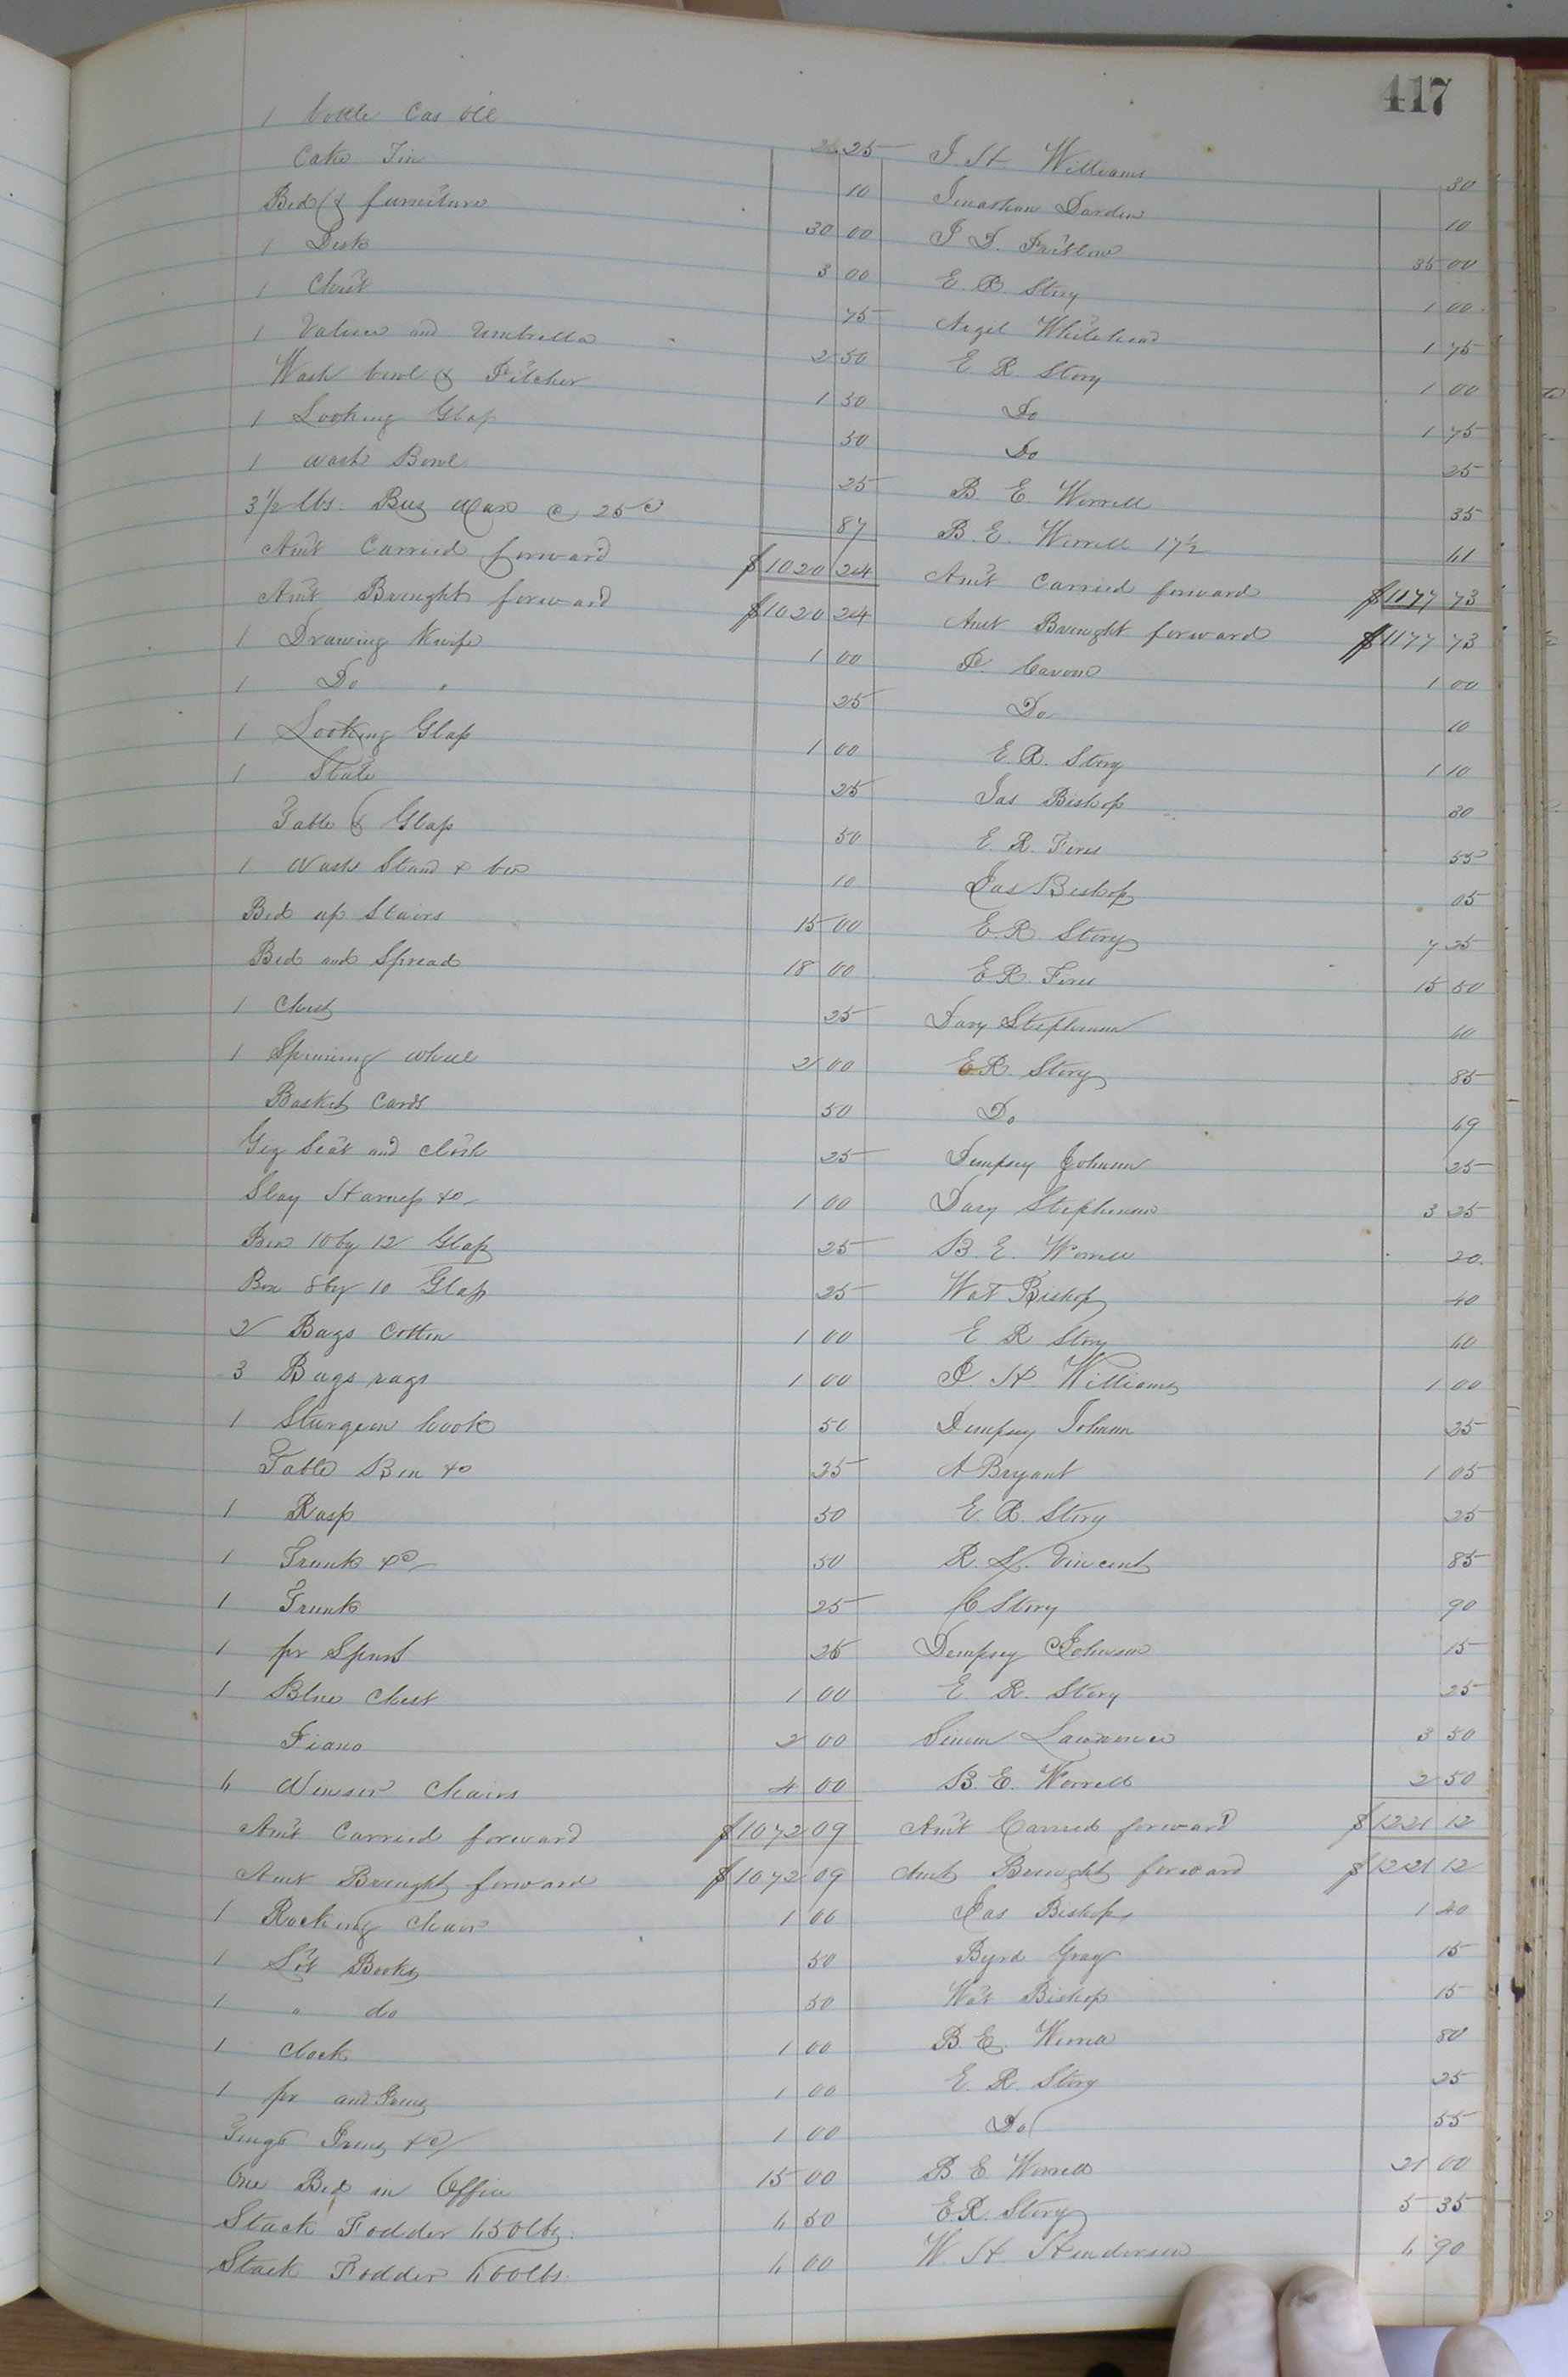 417
1 bottle Cas Oil 25 J H Williams 30
Cake Tin 10 Jonathan Darden 10
Bed & furniture 30 00 J D. Pretlow 35 00
1 Desk 3 00 E R Story 1 00
1 Chest 75 Whitehead 1 75
1 Valice and Umbrella 2 50 E R Story 1 00
Wash bowl & Pitcher 1 50 Do 1 75
1 Looking Glass 50 Do 25
1 Wash Bowl 25 B. E. Worrell 35
3 1/2 lbs. Bees Wax @ 25c 87 B. E. Worrell 17 1/2 61
Am't Carried forward $1020 24 Am't Carried forward $1177 73
Am't Brought forward $1020 24 Amt Brought forward $1177 73
1 Drawing Knife 1 00 P. 1 00
1 Do " 25 Do 10
1 Looking Glass 1 00 E. R. Story 1 10
1 Slate 25 Jas Bishop 30
Table & Glass 50 E. R. 55
1 Wash Stand & box 10 Jas Bishop 05
Bed up Stairs 15 00 E R Story 7 25
Bed and Spread 18 00 E R 15 50
1 Chest 25 Davy Stephenson 60
1 Spinning wheel 2 00 E R. Story 85
Basket Cards 50 Do 69
Gig Seat and cloth 25 Dempsey Johnson 25
Slay Harness &c 1 00 Davy Stephenson 3 25
Box 10 by 12 Glass 25 B. E. Worrell 20
Box 8 by 10 Glass 25 Wat Bishop 40
2 Bags Cotton 1 00 E R Story 60
3 Bags rags 1 00 J. H. Williams 1 00
1 Sturgeon hook 50 Dempsey Johnson 25
Table Box &c 25 A Bryant 1 05
1 Rasp 50 E. R. Story 25
1 Trunk &c 50 R. S. Vincent 85
1 Trunk 25 Story 90
1 pr Spurs 25 Dempsey Johnson 15
1 Blue Chest 1 00 E. R. Story 25
Piano 2 00 Simon Lawrence 3 50
6 Winsor Chairs 4 00 B. E. Worrell 2 50
Am't Carried forward $1072 09 Am't Carried forward $1221 12
Amt Brought forward $1072 09 Amt Brought forward $1221 12
1 Rocking Chair 1 00 Jas Bishop 1 40
1 Lot Books 50 Byrd Gray 15
1 " do 50 Wat Bishop 15
1 Clock 1 00 B. E. Worrell 80
1 pr and Irons 1 00 E. R. Story 25
Tongs Irons &c 1 00 Do 55
One Bed in Office 15 00 B E Worrell 21 00
Stack Fodder 650 lbs. 6 50 E. R. Story 5 35
Stack Fodder 600 lbs. 6 00 W. H Henderson 6 90